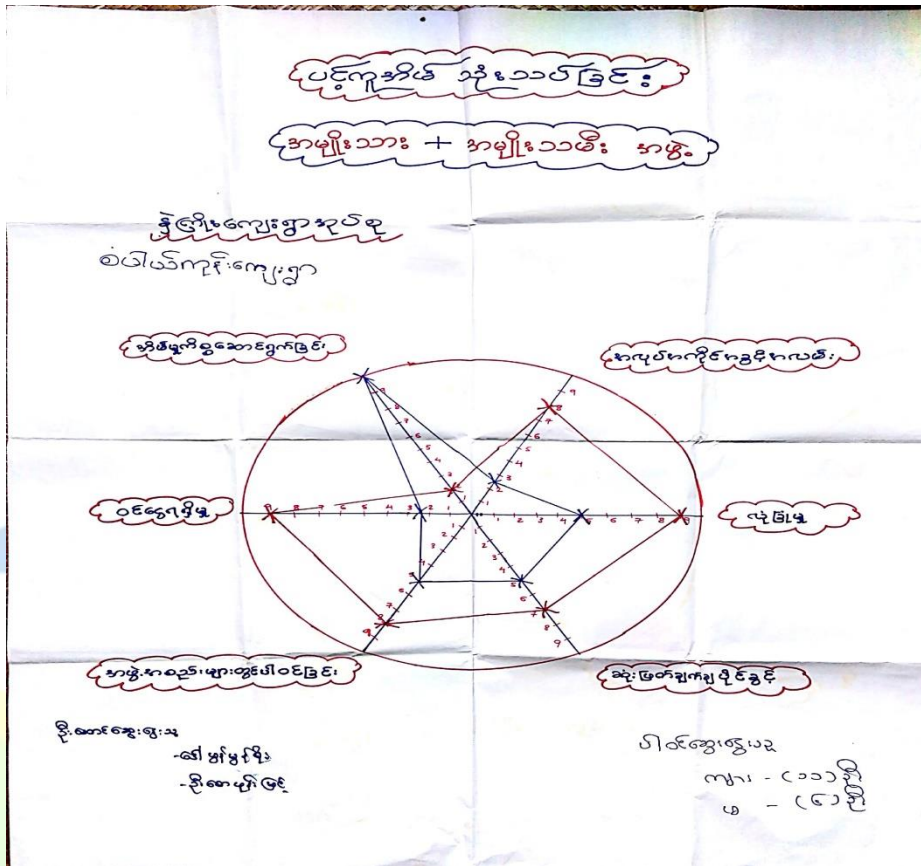 ပင့်ကူအိမ် သုံးသပ်ခြင်း
အမျိုးသား + အမျိုးသမီး အဖွဲ့
နဲကြီးကျေးရွာအုပ်စု
စံပါယ်ကုန်းကျေးရွာ
အိမ်မှုကိစ္စဆောင်ရွက်ခြင်း
အလုပ်အကိုင်အခွင့်အလမ်း
ဝင်ငွေရရှိမှု
လုံခြုံမှု
အဖွဲ့အစည်းများတွင်ပါဝင်ခြင်း
ဆုံးဖြတ်ချက်ချပိုင်ခွင့်
ဦးဆောင်ဆွေးနွေးသူ
ပါဝင်ဆွေးနွေးသူ
ကျား - (၁၁)ဦး
မ - (၆)ဦး